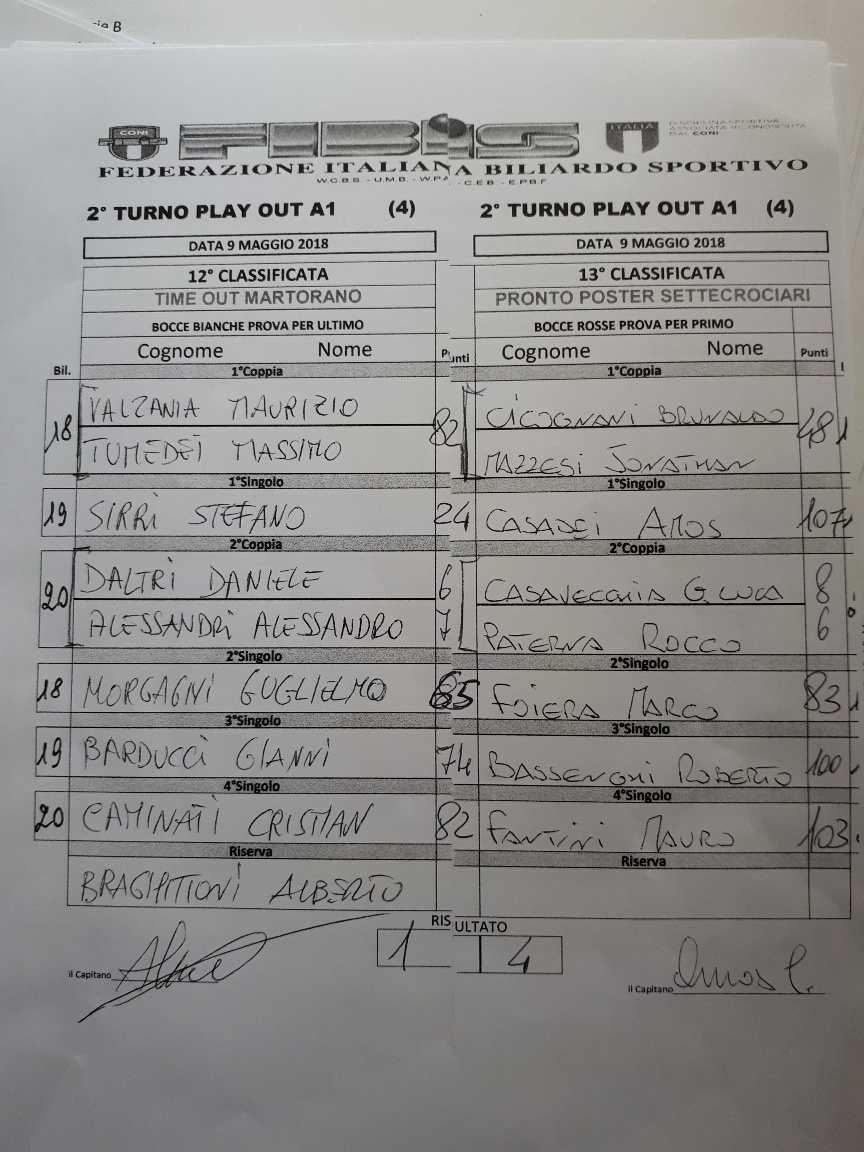 ie B
CONI FIBiS ITALIA DISCIPLINA SPORTIVA
ASSOCIATA RICONOSCIUTA
DAL CONI
FEDERAZIONE ITALIANA BILIARDO SPORTIVO
W.C.B.S. - U.M.B. - W.P.A. - C.E.B. - E.P.B.F.
2° TURNO PLAY OUT A1 (4) 2° TURNO PLAY OUT A1 (4)
DATA 9 MAGGIO 2018 DATA 9 MAGGIO 2018
12° CLASSIFICATA 13° CLASSIFICATA
TIME OUT MARTORANO PRONTO POSTER SETTECROCIARI
BOCCE BIANCHE PROVA PER ULTIMO BOCCE ROSSE PROVA PER PRIMO
Cognome Nome Punti Cognome Nome Punti
Bil. 1°Coppia 1°Coppia
18 VALZANIA MAURIZIO 82 CICOGNANI BRUNALDO 48
TUMEDEI MASSIMO MAZZESI JONATHAN
1°Singolo 1°Singolo
19 SIRRI STEFANO 24 CASADEI AMOS 107
2°Coppia 2°Coppia
20 DALTRI DANIELE 6 CASAVECCHIA G.LUCA 8
ALESSANDRI ALESSANDRO 7 PATERNA ROCCO 6
2°Singolo 2°Singolo
18 MORGAGNI GUGLIELMO 65 FOIERA MARCO 83
3°Singolo 3°Singolo
19 BARDUCCI GIANNI 74 BASSENGHI ROBERTO 100
4°Singolo 4°Singolo
20 CAMINATI CRISTIAN 82 FANTINI MAURO 103
Riserva Riserva
BRAGHITTONI ALBERTO
RISULTATO
1 4
Il Capitano Il Capitano